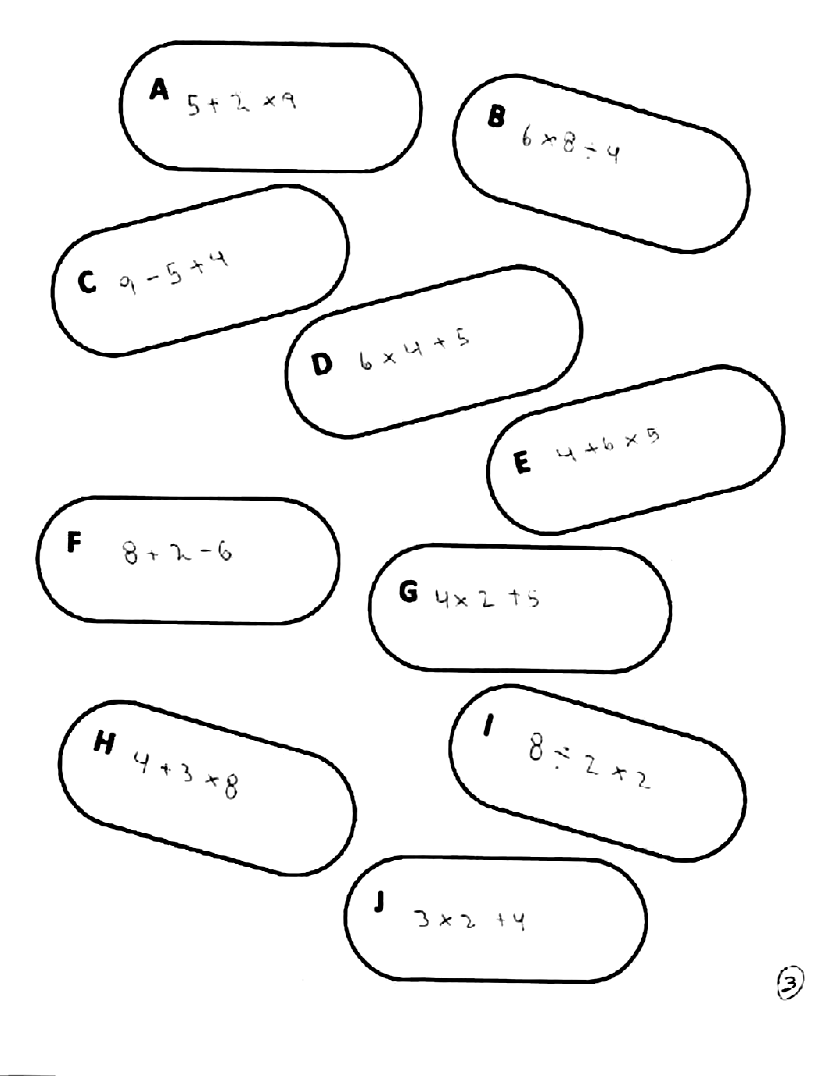 A 5 + 2 × 9
B 6 × 8 ÷ 4
C 9 - 5 + 4
D 6 × 4 + 5
E 4 + 6 × 5
F 8 + 2 - 6
G 4 × 2 + 5
H 4 + 3 × 8
I 8 ÷ 2 × 2
J 3 × 2 + 4
3